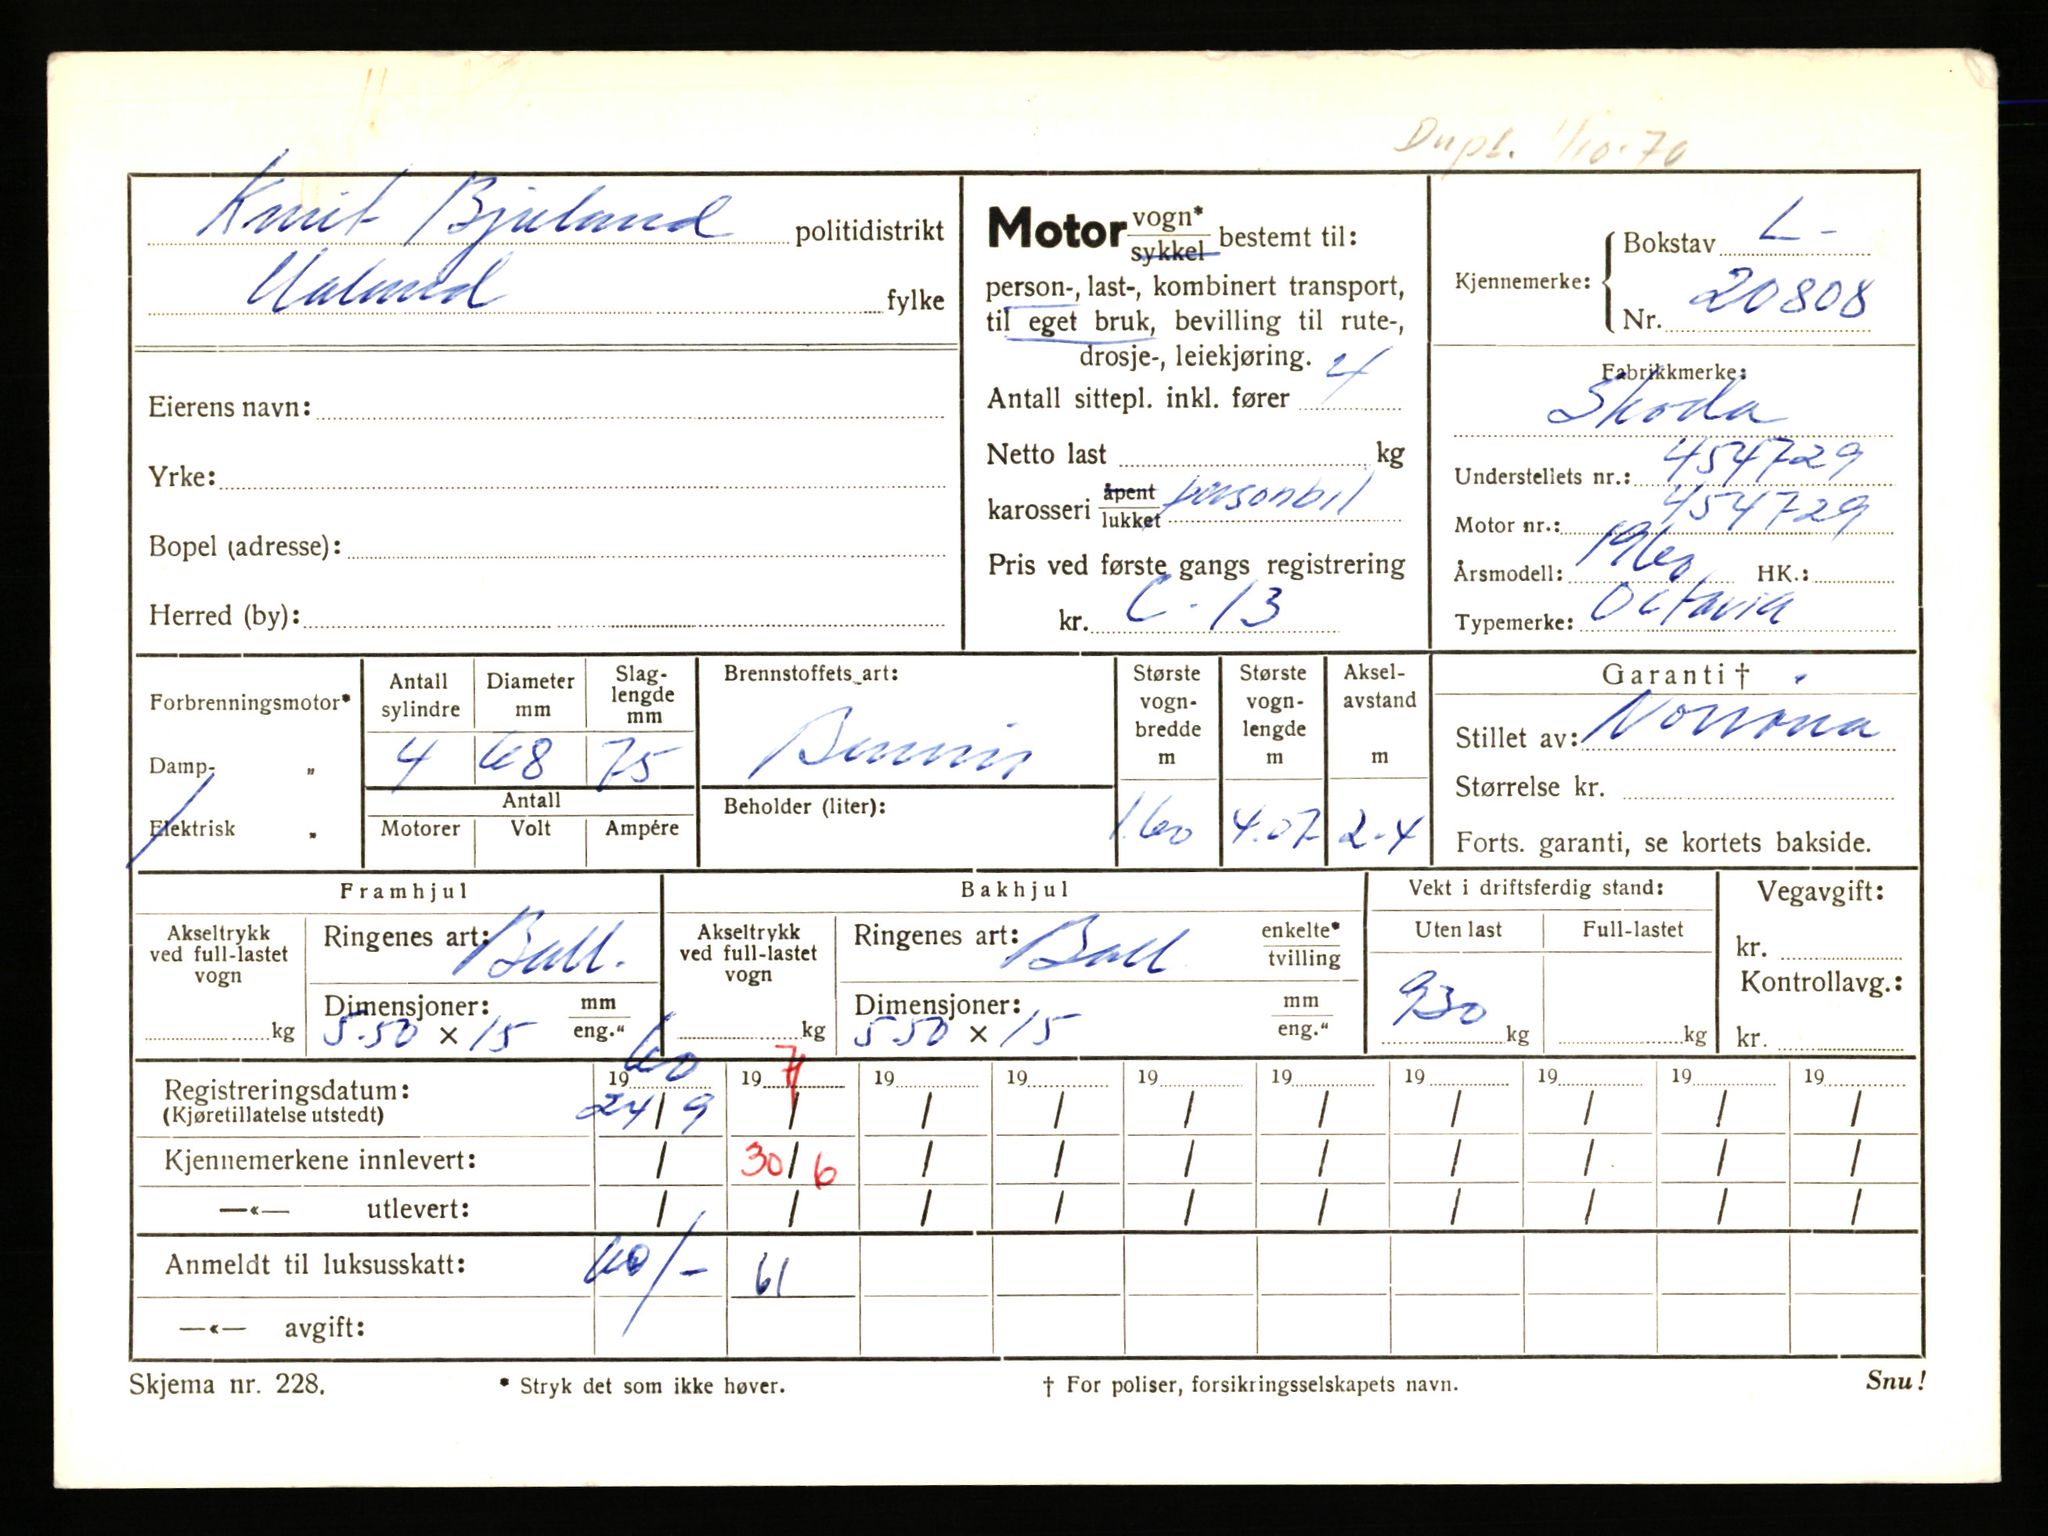 Dupl. 1/10-70
Knut Bjuland politidistrikt
Ualand fylke
Eierens navn:
Yrke:
Bopel (adresse):
Herred (by):
Motor vogn* / sykkel bestemt til:
person-, last-, kombinert transport,
til eget bruk, bevilling til rute-,
drosje-, leiekjøring.
Antall sittepl. inkl. fører 4
Netto last kg
karosseri åpent / lukket personbil
Pris ved første gangs registrering
kr. C-13
Kjennemerke: Bokstav L-
Nr. 20808
Fabrikkmerke:
Skoda
Understellets nr.: 454729
Motor nr.: 454729
Årsmodell: 1960 HK.:
Typemerke: Octavia
Forbrenningsmotor*
Damp- „
Elektrisk „
Antall sylindre Diameter mm Slaglengde mm
4 68 75
Antall
Motorer Volt Ampére
Brennstoffets art:
Bensin
Beholder (liter):
Største vogn-bredde m
1.60
Største vogn-lengde m
4.07
Aksel-avstand m
2-4
Garanti †
Stillet av: Norrøna
Størrelse kr.
Forts. garanti, se kortets bakside.
Framhjul
Akseltrykk ved full-lastet vogn
kg
Ringenes art: Ball.
Dimensjoner: mm / eng."
5.50 × 15
Bakhjul
Akseltrykk ved full-lastet vogn
kg
Ringenes art: Ball enkelte* / tvilling
Dimensjoner: mm / eng."
5.50 × 15
Vekt i driftsferdig stand:
Uten last Full-lastet
930 kg kg
Vegavgift:
kr.
Kontrollavg.:
kr.
19 60 19 71 19 19 19 19 19 19 19 19
Registreringsdatum: 24/9 / / / / / / / / /
(Kjøretillatelse utstedt)
Kjennemerkene innlevert: / 30/6 / / / / / / / /
—«— utlevert: / / / / / / / / / /
Anmeldt til luksusskatt: 60/- 61
—«— avgift:
Skjema nr. 228. * Stryk det som ikke høver. † For poliser, forsikringsselskapets navn. Snu!